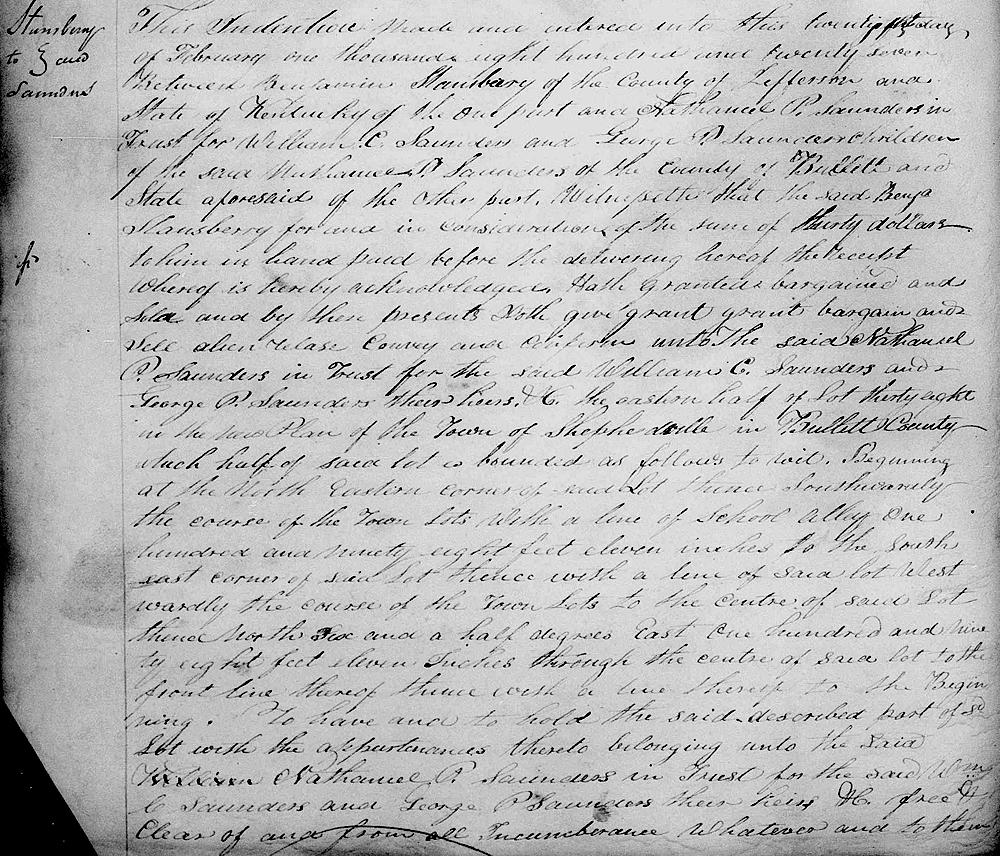 Stansberry
to } deed
Saunders
This Indenture made and entered into this twenty fifth day
of February one thousand eight hundred and twenty seven
Between Benjamin Stansbery of the County of Jefferson and
State of Kentucky of the one part and Nathaniel P. Saunders in
Trust for William C. Saunders and George P Saunders Children
of the said Nathaniel P Saunders of the County of Bullitt and
State aforesaid of the other part. Witnesseth that the said Benja
Stansberry for and in consideration of the sum of thirty dollars
to him in hand paid before the delivering hereof the receipt
whereof is hereby acknowledged. Hath granted bargained and
sold and by these presents Doth give grant grant bargain and
sell alien release Convey and confirm unto The said Nathaniel
P. Saunders in Trust for the said William C. Saunders and
George P. Saunders their heirs, &C. the eastern half of Lot thirty eight
in the new Plan of the Town of Shepherdsville in Bullitt County
which half of said lot is bounded as follows to wit. Beginning
at the North Eastern corner of said Lot thence Southwardly
the course of the Town Lots with a line of School Alley One
hundred and ninety eight feet eleven inches to the South
east corner of said Lot thence with a line of said lot West
wardly the course of the Town Lots to the centre of said Lot
thence North Six and a half degrees East One hundred and nine
ty eight feet eleven Inches through the centre of said lot to the
front line thereof thence with a line thereof to the Begin
ning. To have and to hold the said described part of sd
Lot with the appurtenances thereto belonging unto the said
Nathaniel P. Saunders in Trust for the said Wm
C Saunders and George P Saunders their heirs &C. free &
Clear of and from all Incumberance Whatever and to them